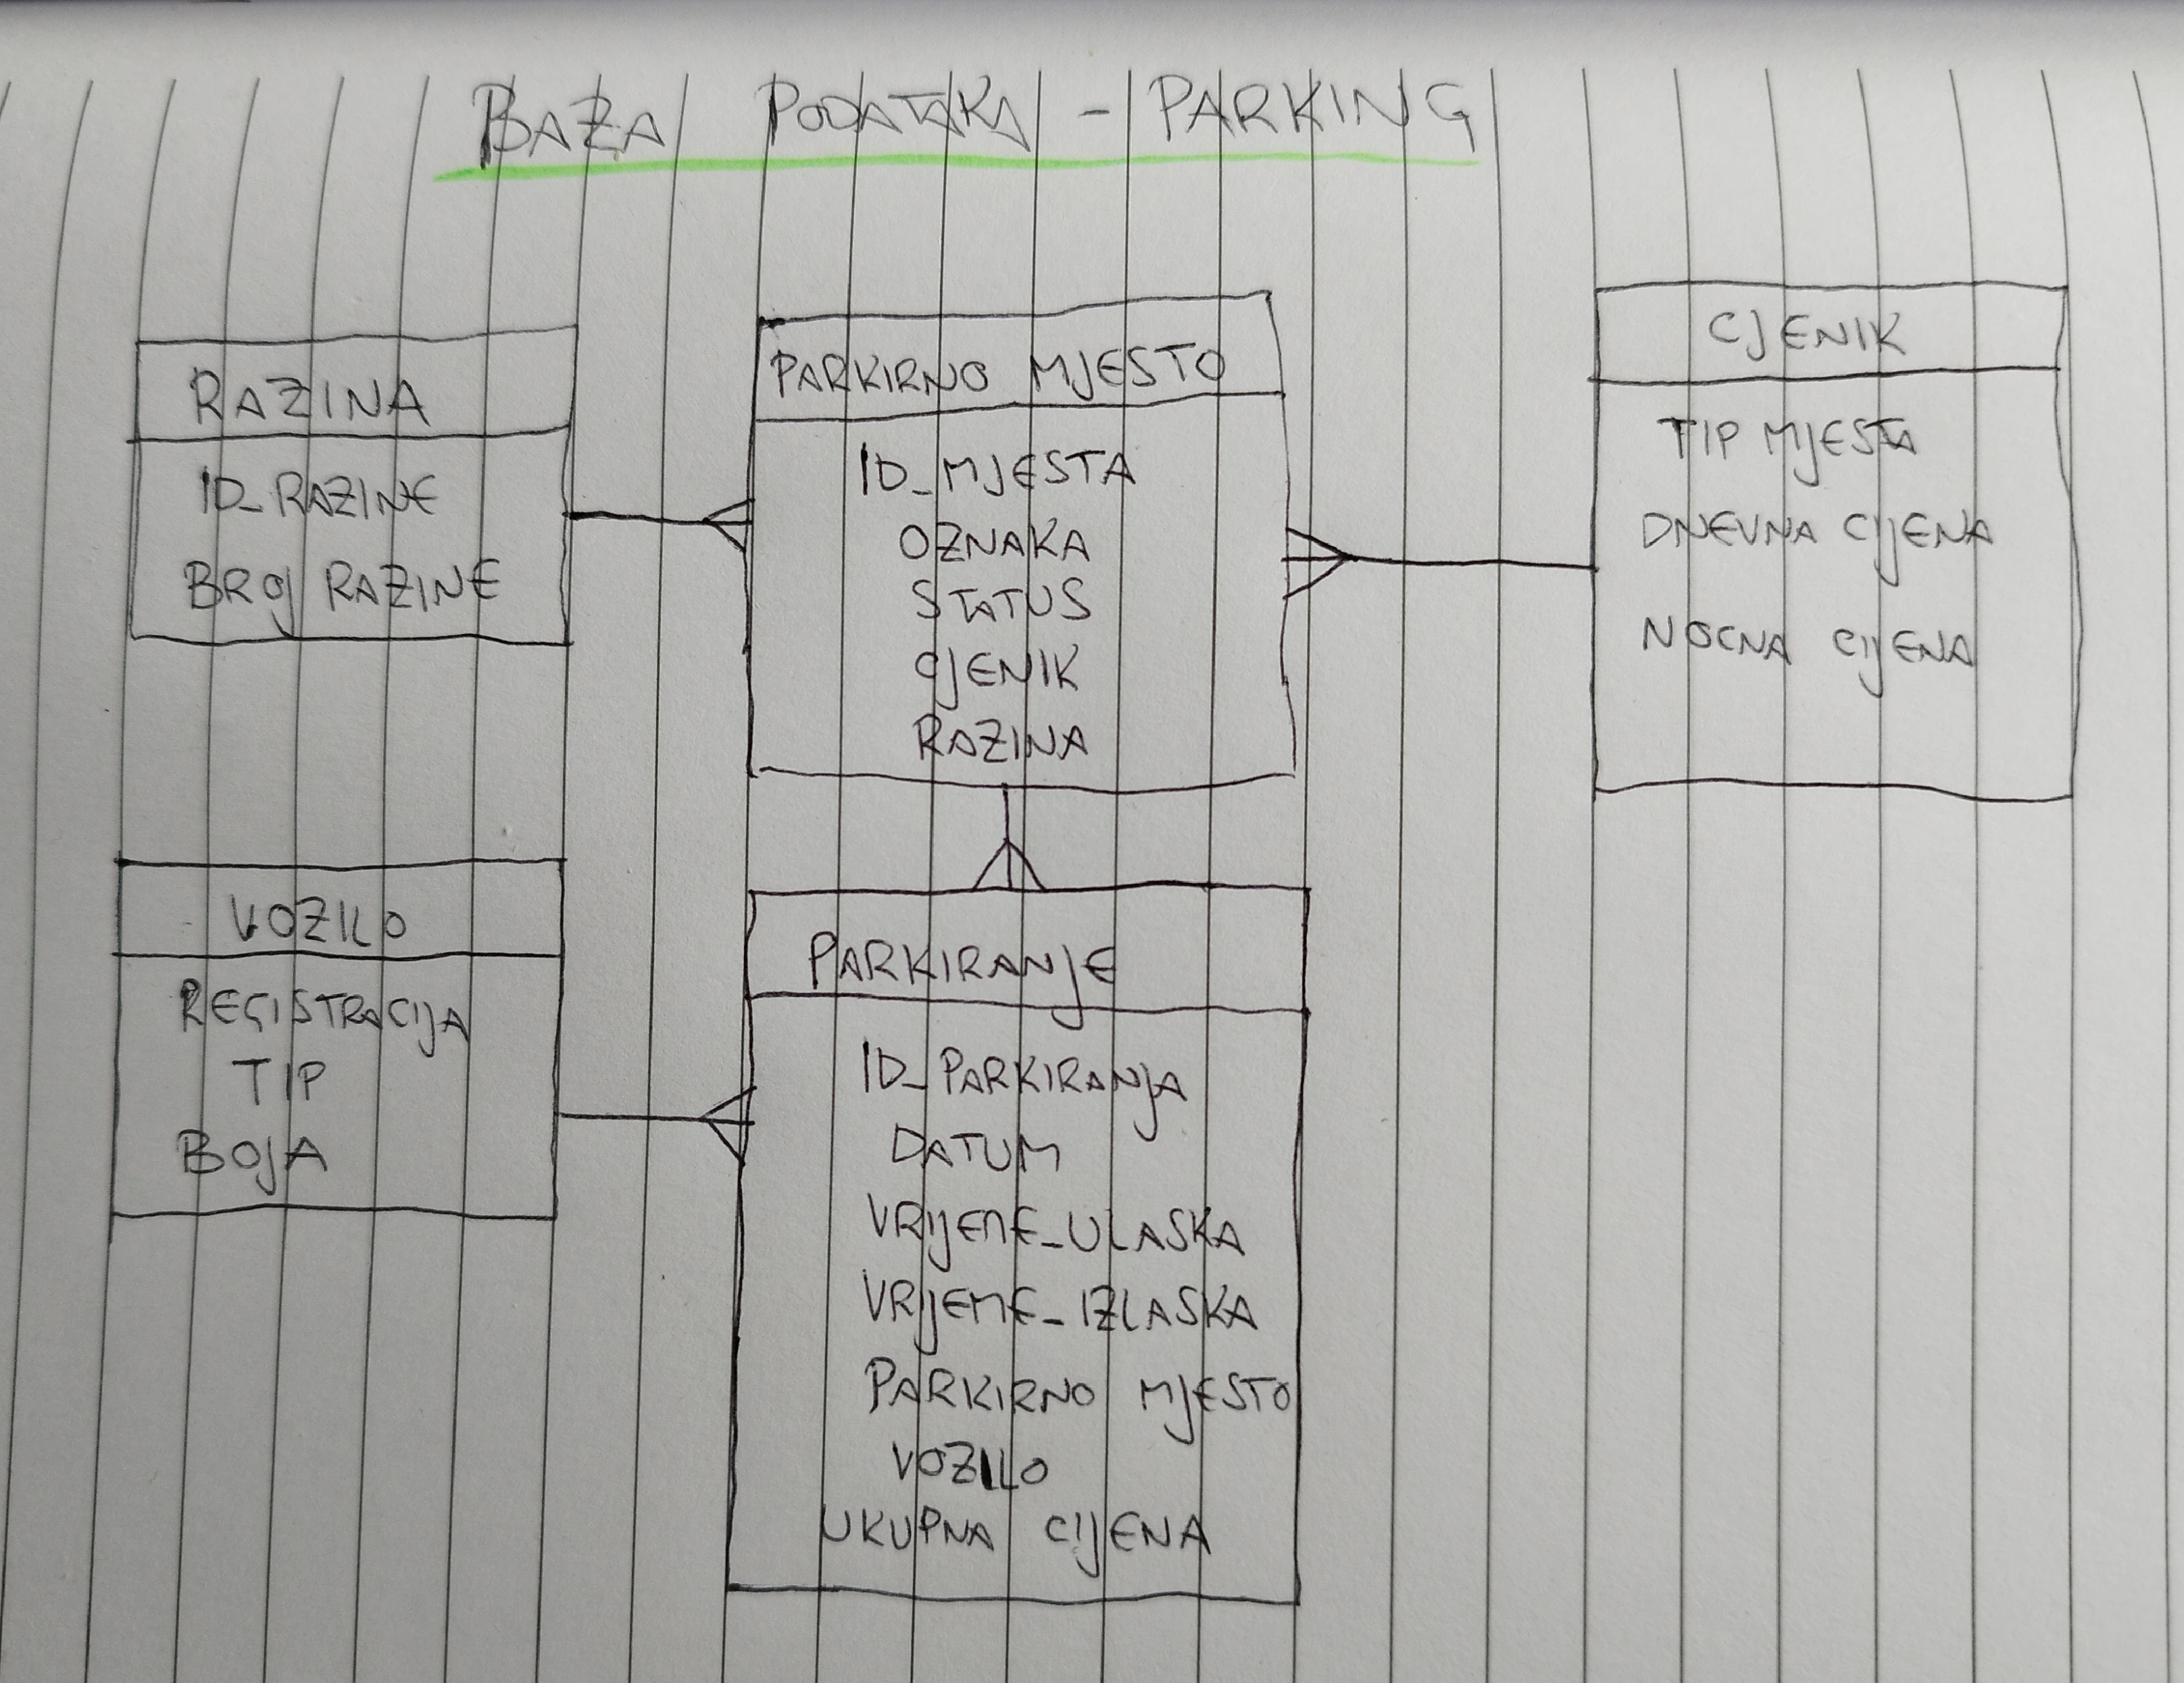 BAZA PODATAKA - PARKING
RAZINA
ID_RAZINE
BROJ RAZINE
PARKIRNO MJESTO
ID_MJESTA
OZNAKA
STATUS
CJENIK
RAZINA
CJENIK
TIP MJESTA
DNEVNA CIJENA
NOCNA CIJENA
VOZILO
REGISTRACIJA
TIP
BOJA
PARKIRANJE
ID_PARKIRANJA
DATUM
VRIJEME_ULASKA
VRIJEME_IZLASKA
PARKIRNO MJESTO
VOZILO
UKUPNA CIJENA